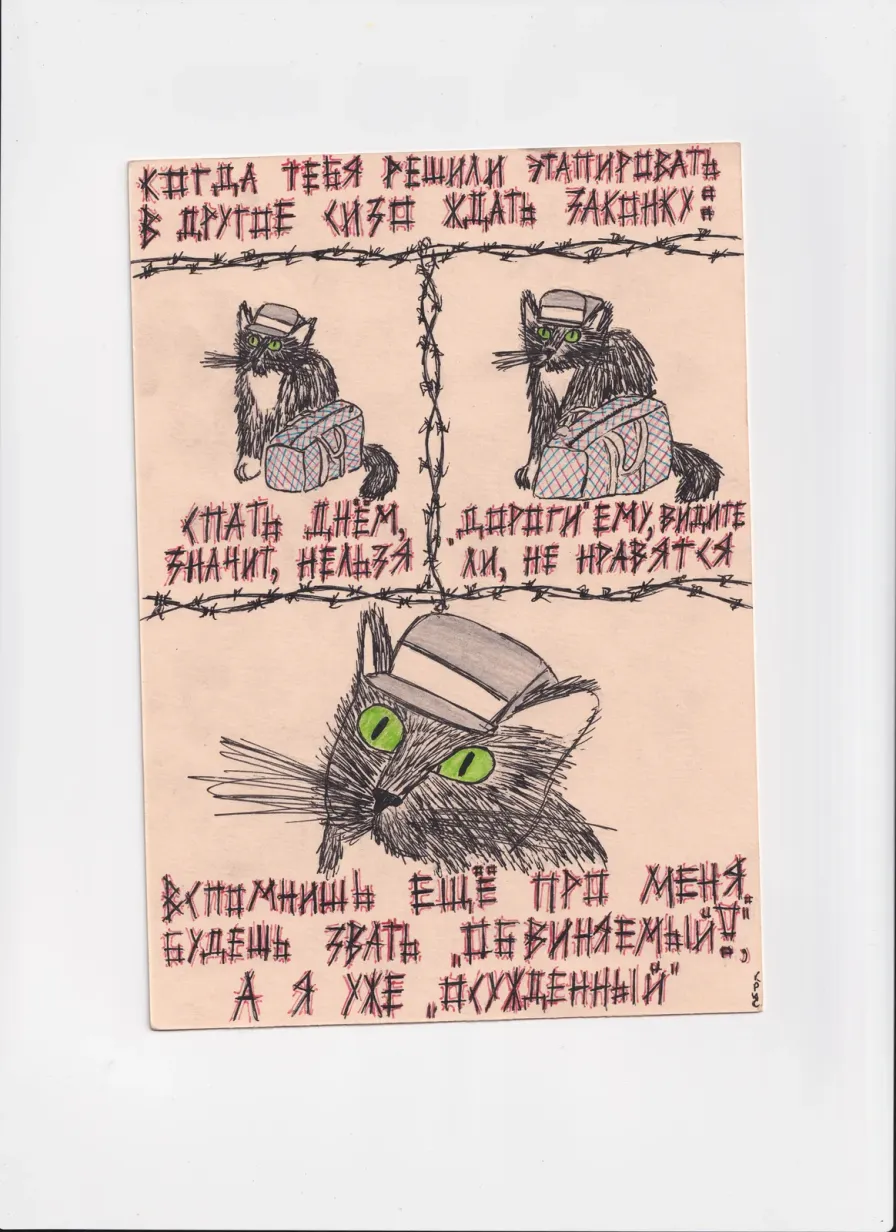 КОГДА ТЕБЯ РЕШИЛИ ЭТАПИРОВАТЬ
В ДРУГОЕ СИЗО ЖДАТЬ ЗАКОНКУ:
СПАТЬ ДНЁМ,
ЗНАЧИТ, НЕЛЬЗЯ
„ДОРОГИ" ЕМУ, ВИДИТЕ
ЛИ, НЕ НРАВЯТСЯ
ВСПОМНИШЬ ЕЩЁ ПРО МЕНЯ,
БУДЕШЬ ЗВАТЬ „ОБВИНЯЕМЫЙ!",
А Я УЖЕ „ОСУЖДЕННЫЙ"